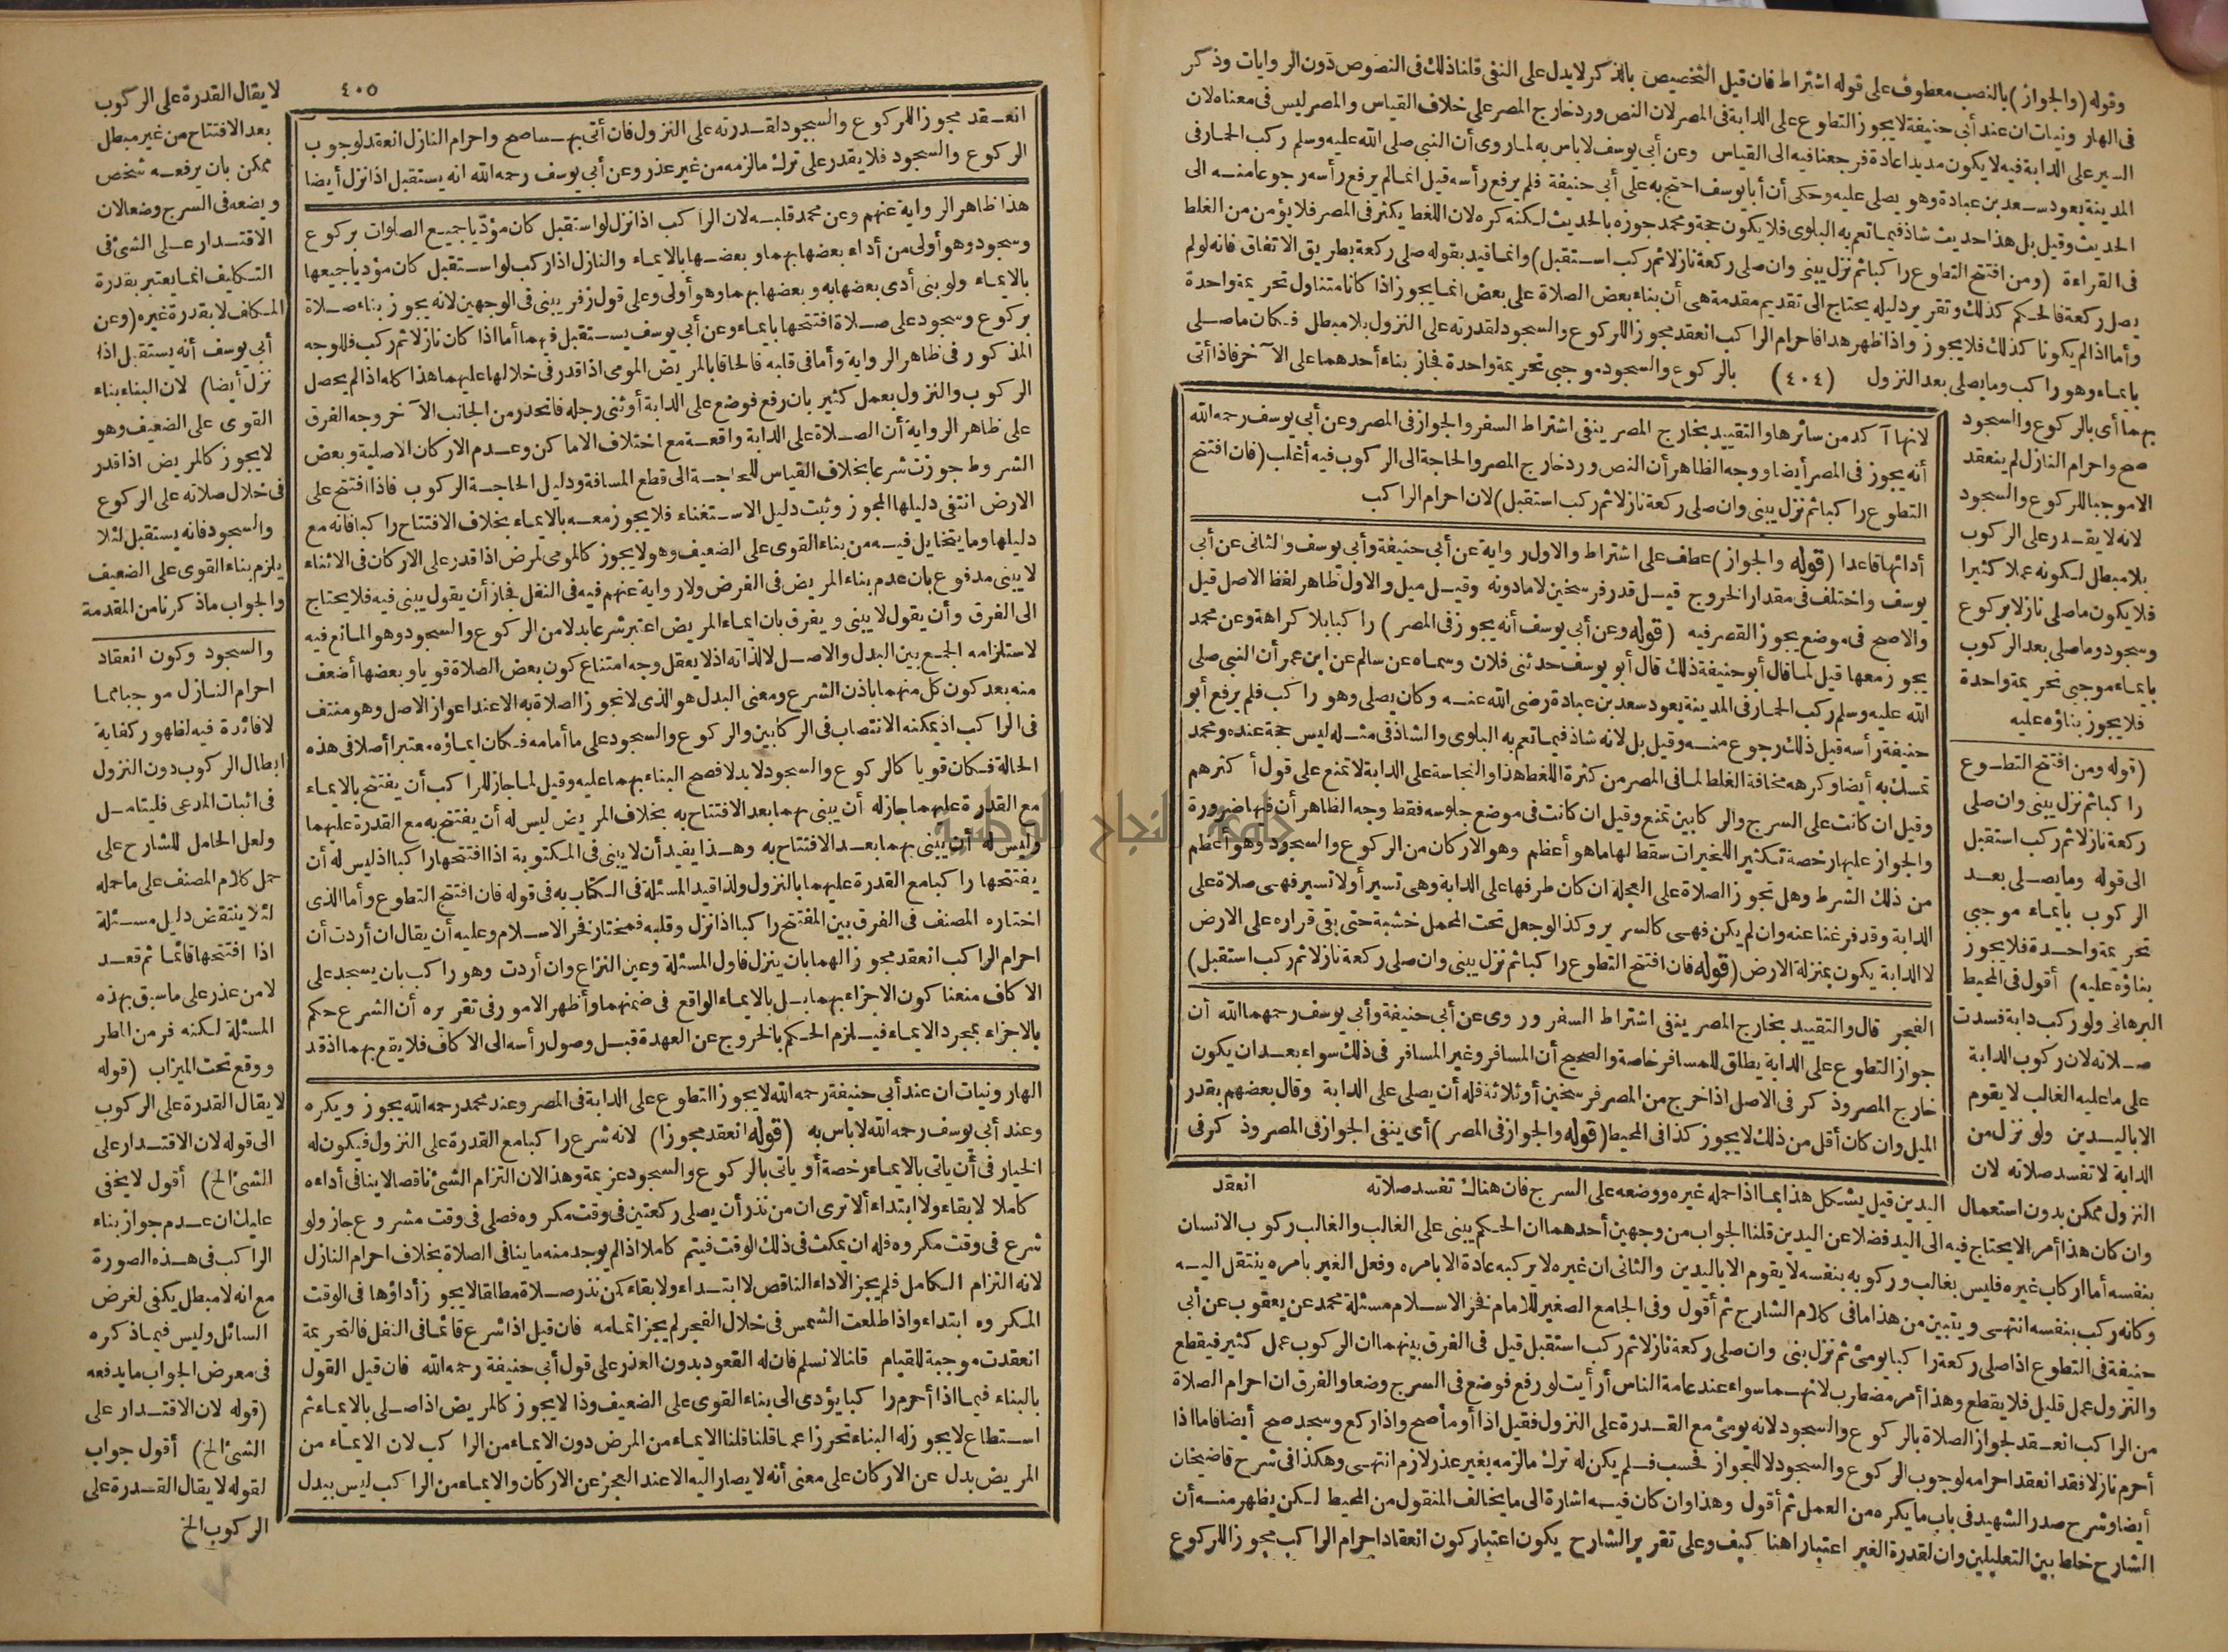 وقوله (والجواز) بالنصب معطوف على قوله اشتراط فان قيل التخصيص بالذكر لا يدل على النفى قلنا ذلك فى النصوص دون الروايات وذكر
فى الهارونيات ان عند أبى حنيفة لا يجوز التطوع على الدابة فى المصر لان النص ورد خارج المصر على خلاف القياس والمصر ليس فى معناه لان
السير على الدابة فيه لا يكون مديدا عادة فرجعنا فيه الى القياس وعن أبى يوسف لا باس به لما روى أن النبى صلى الله عليه وسلم ركب الحمار فى
المدينة يعود سعد بن عبادة وهو يصلى عليه وحكى أن أبا يوسف احتج به على أبى حنيفة فلم يرفع رأسه قيل انما لم يرفع رأسه رجوعا منه الى
الحديث وقيل بل هذا حديث شاذ فيما تعم به البلوى فلا يكون حجة ومحمد جوزه بالحديث لكنه كره لان اللغط يكثر فى المصر فلا يؤمن من الغلط
فى القراءة (ومن افتتح التطوع راكبا ثم نزل يبنى وان صلى ركعة نازلا ثم ركب استقبل) وانما قيد بقوله صلى ركعة بطريق الاتفاق فانه لو لم
يصل ركعة فالحكم كذلك وتقرير دليله يحتاج الى تقديم مقدمة هى أن بناء بعض الصلاة على بعض انما يجوز اذا كانا متناول تحريمة واحدة
وأما اذا لم يكونا كذلك فلا يجوز واذا ظهر هذا فاحرام الراكب انعقد مجوزا للركوع والسجود لقدرته على النزول بلا مبطل فكان ما صلى
بايماء وهو راكب وما يصلى بعد النزول (٤٠٤) بالركوع والسجود موجبى تحريمة واحدة فجاز بناء أحدهما على الآخر فاذا أتى
بهما أى بالركوع والسجود
صح واحرام النازل لم ينعقد
الا موجبا للركوع والسجود
لانه لا يقدر على الركوب
بلا مبطل لكونه عملا كثيرا
فلا يكون ما صلى نازلا بركوع
وسجود وما صلى بعد الركوب
بايماء موجبى تحريمة واحدة
فلا يجوز بناؤه عليه
(قوله ومن افتتح التطوع
راكبا ثم نزل يبنى وان صلى
ركعة نازلا ثم ركب استقبل
الى قوله وما يصلى بعد
الركوب بايماء موجبى
تحريمة واحدة فلا يجوز
بناؤه عليه) أقول فى المحيط
البرهانى ولو ركب دابة فسدت
صلاته لان ركوب الدابة
على ما عليه الغالب لا يقوم
الا باليدين ولو نزل من
الدابة لا تفسد صلاته لان
لانها آكد من سائرها والتقييد بخارج المصر ينفى اشتراط السفر والجواز فى المصر وعن أبى يوسف رحمه الله
أنه يجوز فى المصر أيضا ووجه الظاهر أن النص ورد خارج المصر والحاجة الى الركوب فيه أغلب (فان افتتح
التطوع راكبا ثم نزل يبنى وان صلى ركعة نازلا ثم ركب استقبل) لان احرام الراكب
أدائها قاعدا (قوله والجواز) عطف على اشتراط والاول رواية عن أبى حنيفة وأبى يوسف والثانى عن أبى
يوسف واختلف فى مقدار الخروج قيل قدر فرسخين لا ما دونه وقيل ميل والاول ظاهر لفظ الاصل قيل
والاصح فى موضع يجوز القصر فيه (قوله وعن أبى يوسف أنه يجوز فى المصر) راكبا بلا كراهة وعن محمد
يجوز معها قيل لما قال أبو حنيفة ذلك قال أبو يوسف حدثنى فلان وسماه عن سالم عن ابن عمر أن النبى صلى
الله عليه وسلم ركب الحمار فى المدينة يعود سعد بن عبادة رضى الله عنه وكان يصلى وهو راكب فلم يرفع أبو
حنيفة رأسه قيل ذلك رجوع منه وقيل بل لانه شاذ فيما تعم به البلوى والشاذ فى مثله ليس حجة عنده ومحمد
تمسك به أيضا وكرهه مخافة الغلط لما فى المصر من كثرة اللغط هذا والنجاسة على الدابة لا تمنع على قول أكثرهم
وقيل ان كانت على السرج والركابين تمنع وقيل ان كانت فى موضع جلوسه فقط وجه الظاهر أن فيها ضرورة
والجواز عليها رخصة تكثيرا للخيرات سقط لها ما هو أعظم وهو الاركان من الركوع والسجود وهو أعظم
من ذلك الشرط وهل تجوز الصلاة على العجلة ان كان طرفها على الدابة وهى تسير أو لا تسير فهى صلاة على
الدابة وقد فرغنا عنه وان لم يكن فهى كالسرير وكذا لو جعل تحت المحمل خشبة حتى بقى قراره على الارض
لا الدابة يكون بمنزلة الارض (قوله فان افتتح التطوع راكبا ثم نزل يبنى وان صلى ركعة نازلا ثم ركب استقبل)
الفجر قال والتقييد بخارج المصر ينفى اشتراط السفر وروى عن أبى حنيفة وأبى يوسف رحمهما الله أن
جواز التطوع على الدابة يطلق للمسافر خاصة والصحيح أن المسافر وغير المسافر فى ذلك سواء بعد ان يكون
خارج المصر وذكر فى الاصل اذا خرج من المصر فرسخين أو ثلاثة فله أن يصلى على الدابة وقال بعضهم بقدر
الميل وان كان أقل من ذلك لا يجوز كذا فى المحيط (قوله والجواز فى المصر) أى ينفى الجواز فى المصر وذكر فى
انعقد
النزول ممكن بدون استعمال اليدين قيل يشكل هذا بما اذا حمله غيره ووضعه على السرج فان هناك تفسد صلاته
وان كان هذا أمرا لا يحتاج فيه الى اليد فضلا عن اليدين قلنا الجواب من وجهين أحدهما ان الحكم يبنى على الغالب والغالب ركوب الانسان
بنفسه أما اركاب غيره فليس بغالب وركوبه بنفسه لا يقوم الا باليدين والثانى ان غيره لا يركبه عادة الا بامره وفعل الغير بامره ينتقل اليه
وكانه ركب بنفسه انتهى ويتبين من هذا ما فى كلام الشارح ثم أقول وفى الجامع الصغير للامام فخر الاسلام مسئلة محمد عن يعقوب عن أبى
حنيفة فى التطوع اذا صلى ركعة راكبا يومئ ثم نزل بنى وان صلى ركعة نازلا ثم ركب استقبل قيل فى الفرق بينهما ان الركوب عمل كثير فيقطع
والنزول عمل قليل فلا يقطع وهذا أمر مضطرب لانهما سواء عند عامة الناس أرأيت لو رفع فوضع فى السرج وضعا والفرق ان احرام الصلاة
من الراكب انعقد لجواز الصلاة بالركوع والسجود لانه يومئ مع القدرة على النزول فقيل اذا أومأ صح واذا ركع وسجد صح أيضا فاما اذا
أحرم نازلا فقد انعقد احرامه لوجوب الركوع والسجود لا للجواز فحسب فلم يكن له ترك ما لزمه بغير عذر لازم انتهى وهكذا فى شرح قاضيخان
أيضا وشرح صدر الشهيد فى باب ما يكره من العمل ثم أقول وهذا وان كان فيه اشارة الى ما يخالف المنقول من المحيط لكن يظهر منه أن
الشارح خلط بين التعليلين وان لقدرة الغير اعتبارا هنا كيف وعلى تقرير الشارح يكون اعتبار كون انعقاد احرام الراكب مجوزا للركوع
٤٠٥
انعقد مجوزا للركوع والسجود لقدرته على النزول فان أتى بهما صح واحرام النازل انعقد لوجوب
الركوع والسجود فلا يقدر على ترك ما لزمه من غير عذر وعن أبى يوسف رحمه الله انه يستقبل اذا نزل أيضا
هذا ظاهر الرواية عنهم وعن محمد قلبه لان الراكب اذا نزل لو استقبل كان مؤديا جميع الصلوات بركوع
وسجود وهو أولى من أداء بعضها بهما وبعضها بالايماء والنازل اذا ركب لو استقبل كان مؤديا جميعها
بالايماء ولو بنى أدى بعضها به وبعضها بهما وهو أولى وعلى قول زفر يبنى فى الوجهين لانه يجوز بناء صلاة
بركوع وسجود على صلاة افتتحها بايماء وعن أبى يوسف يستقبل فيهما أما اذا كان نازلا ثم ركب فللوجه
المذكور فى ظاهر الرواية وأما فى قلبه فالحاقا بالمريض المومى اذا قدر فى خلالها عليهما هذا كله اذا لم يحصل
الركوب والنزول بعمل كثير بان رفع فوضع على الدابة أو ثنى رجله فانحدر من الجانب الآخر وجه الفرق
على ظاهر الرواية أن الصلاة على الدابة واقعة مع اختلاف الاماكن وعدم الاركان الاصلية وبعض
الشروط جوزت شرعا بخلاف القياس للحاجة الى قطع المسافة ودليل الحاجة الركوب فاذا افتتح على
الارض انتفى دليلها المجوز وثبت دليل الاستغناء فلا يجوز معه بالايماء بخلاف الافتتاح راكبا فانه مع
دليلها وما يتخايل فيه من بناء القوى على الضعيف وهو لا يجوز كالمومى لمرض اذا قدر على الاركان فى الاثناء
لا يبنى مدفوع بان عدم بناء المريض فى الفرض ولا رواية عنهم فيه فى النفل فجاز أن يقول يبنى فيه فلا يحتاج
الى الفرق وأن يقول لا يبنى ويفرق بان ايماء المريض اعتبر شرعا بدلا من الركوع والسجود وهو المانع فيه
لاستلزامه الجمع بين البدل والاصل لا لذاته اذ لا يعقل وجه امتناع كون بعض الصلاة قويا وبعضها أضعف
منه بعد كون كل منهما باذن الشرع ومعنى البدل هو الذى لا تجوز الصلاة به الا عند اعواز الاصل وهو منتف
فى الراكب اذ يمكنه الانتصاب فى الركابين والركوع والسجود على ما أمامه فكان ايماؤه معتبرا أصلا فى هذه
الحالة فكان قويا كالركوع والسجود لا بدلا فصح البناء بهما عليه وقيل لما جاز للراكب أن يفتتح بالايماء
مع القدرة عليهما جاز له أن يبنى بهما بعد الافتتاح به بخلاف المريض ليس له أن يفتتح به مع القدرة عليهما
وليس له أن يبنى بهما بعد الافتتاح به وهذا يفيد أن لا يبنى فى المكتوبة اذا افتتحها راكبا اذ ليس له أن
يفتتحها راكبا مع القدرة عليهما بالنزول ولذا قيد المسئلة فى الكتاب به فى قوله فان افتتح التطوع وأما الذى
اختاره المصنف فى الفرق بين المفتتح راكبا اذا نزل وقلبه فمختار فخر الاسلام وعليه أن يقال ان أردت أن
احرام الراكب انعقد مجوزا لهما بان ينزل فاول المسئلة وعين النزاع وان أردت وهو راكب بان يسجد على
الاكاف منعنا كون الاجزاء بهما بل بالايماء الواقع فى ضمنهما وأظهر الامور فى تقريره أن الشرع حكم
بالاجزاء بمجرد الايماء فيلزم الحكم بالخروج عن العهدة قبل وصول رأسه الى الاكاف فلا يقع بهما اذ قد
الهارونيات ان عند أبى حنيفة رحمه الله لا يجوز التطوع على الدابة فى المصر وعند محمد رحمه الله يجوز ويكره
وعند أبى يوسف رحمه الله لا باس به (قوله انعقد مجوزا) لانه شرع راكبا مع القدرة على النزول فيكون له
الخيار فى أن ياتى بالايماء رخصة أو ياتى بالركوع والسجود عزيمة وهذا لان التزام الشئ ناقصا لا ينافى أداءه
كاملا لا بقاء ولا ابتداء ألا ترى ان من نذر أن يصلى ركعتين فى وقت مكروه فصلى فى وقت مشروع جاز ولو
شرع فى وقت مكروه فله ان يمكث فى ذلك الوقت فيتم كاملا اذا لم يوجد منه ما ينافى الصلاة بخلاف احرام النازل
لانه التزام الكامل فلم يجز الاداء الناقص لا ابتداء ولا بقاء كمن نذر صلاة مطلقا لا يجوز أداؤها فى الوقت
المكروه ابتداء واذا طلعت الشمس فى خلال الفجر لم يجز اتمامه فان قيل اذا شرع قائما فى النفل فالتحريمة
انعقدت موجبة للقيام قلنا لا نسلم فان له القعود بدون العذر على قول أبى حنيفة رحمه الله فان قيل القول
بالبناء فيما اذا أحرم راكبا يؤدى الى بناء القوى على الضعيف وذا لا يجوز كالمريض اذا صلى بالايماء ثم
استطاع لا يجوز له البناء تحرزا عما قلنا قلنا الايماء من المرض دون الايماء من الراكب لان الايماء من
المريض بدل عن الاركان على معنى أنه لا يصار اليه الا عند العجز عن الاركان والايماء من الراكب ليس ببدل
لا يقال القدرة على الركوب
بعد الافتتاح من غير مبطل
ممكن بان يرفعه شخص
ويضعه فى السرج وضعا لان
الاقتدار على الشئ فى
التكليف انما يعتبر بقدرة
المكلف لا بقدرة غيره (وعن
أبى يوسف أنه يستقبل اذا
نزل أيضا) لان البناء بناء
القوى على الضعيف وهو
لا يجوز كالمريض اذا قدر
فى خلال صلاته على الركوع
والسجود فانه يستقبل لئلا
يلزم بناء القوى على الضعيف
والجواب ما ذكرنا من المقدمة
والسجود وكون انعقاد
احرام النازل موجبا مما
لا فائدة فيه لظهور كفاية
ابطال الركوب دون النزول
فى اثبات المدعى فليتامل
ولعل الحامل للشارح على
حمل كلام المصنف على ما حمله
لئلا ينتقض دليل مسئلة
اذا افتتحها قائما ثم قعد
لا من عذر على ما سبق بهذه
المسئلة لكنه فر من المطر
ووقع تحت الميزاب (قوله
لا يقال القدرة على الركوب
الى قوله لان الاقتدار على
الشئ الخ) أقول لا يخفى
عليك ان عدم جواز بناء
الراكب فى هذه الصورة
مع انه لا مبطل يكفى لغرض
السائل وليس فيما ذكره
فى معرض الجواب ما يدفعه
(قوله لان الاقتدار على
الشئ الخ) أقول جواب
لقوله لا يقال القدرة على
الركوب الخ
جامعة النجاح الوطنية